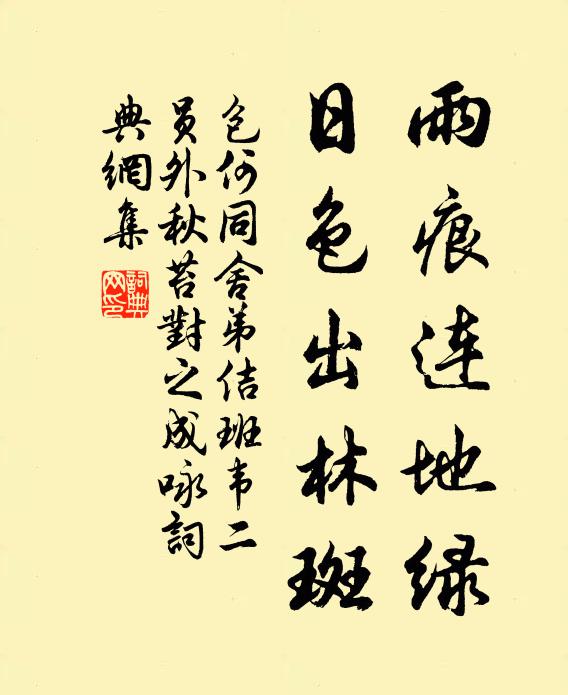 雨痕连地绿
日色出林斑
包何同舍弟佶班韦二
员外秋苔對之成咏詞
典網集
詞典網印